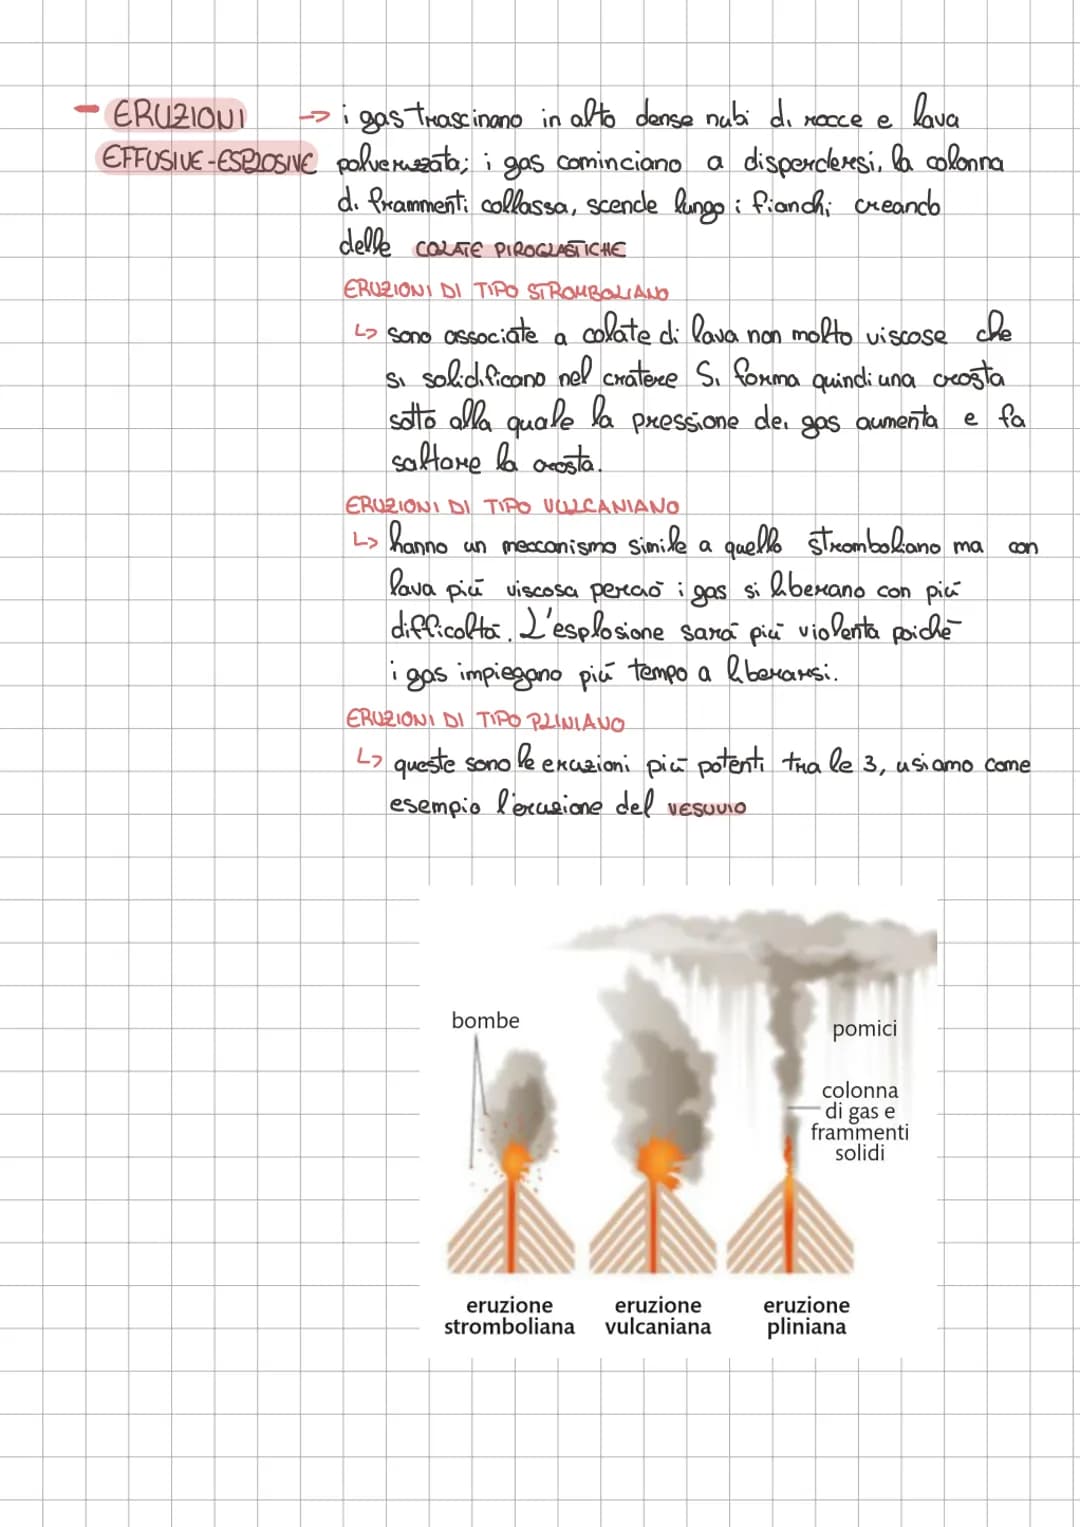 - ERUZIONI -> i gas trascinano in alto dense nubi di rocce e lava
EFFUSIVE-ESPLOSIVE polverizzata; i gas cominciano a disperdersi, la colonna
di frammenti collassa, scende lungo i fianchi creando
delle COLATE PIROCLASTICHE
ERUZIONI DI TIPO STROMBOLIANO
↳ sono associate a colate di lava non molto viscose che
si solidificano nel cratere Si forma quindi una crosta
sotto alla quale la pressione dei gas aumenta e fa
saltare la crosta.
ERUZIONI DI TIPO VULCANIANO
↳ hanno un meccanismo simile a quello stromboliano ma con
lava più viscosa perciò i gas si liberano con più
difficoltà. L'esplosione sarà più violenta poichè
i gas impiegano più tempo a liberarsi.
ERUZIONI DI TIPO PLINIANO
↳ queste sono le eruzioni più potenti tra le 3, usiamo come
esempio l'eruzione del VESUVIO
bombe
pomici
colonna
di gas e
frammenti
solidi
eruzione
stromboliana
eruzione
vulcaniana
eruzione
pliniana